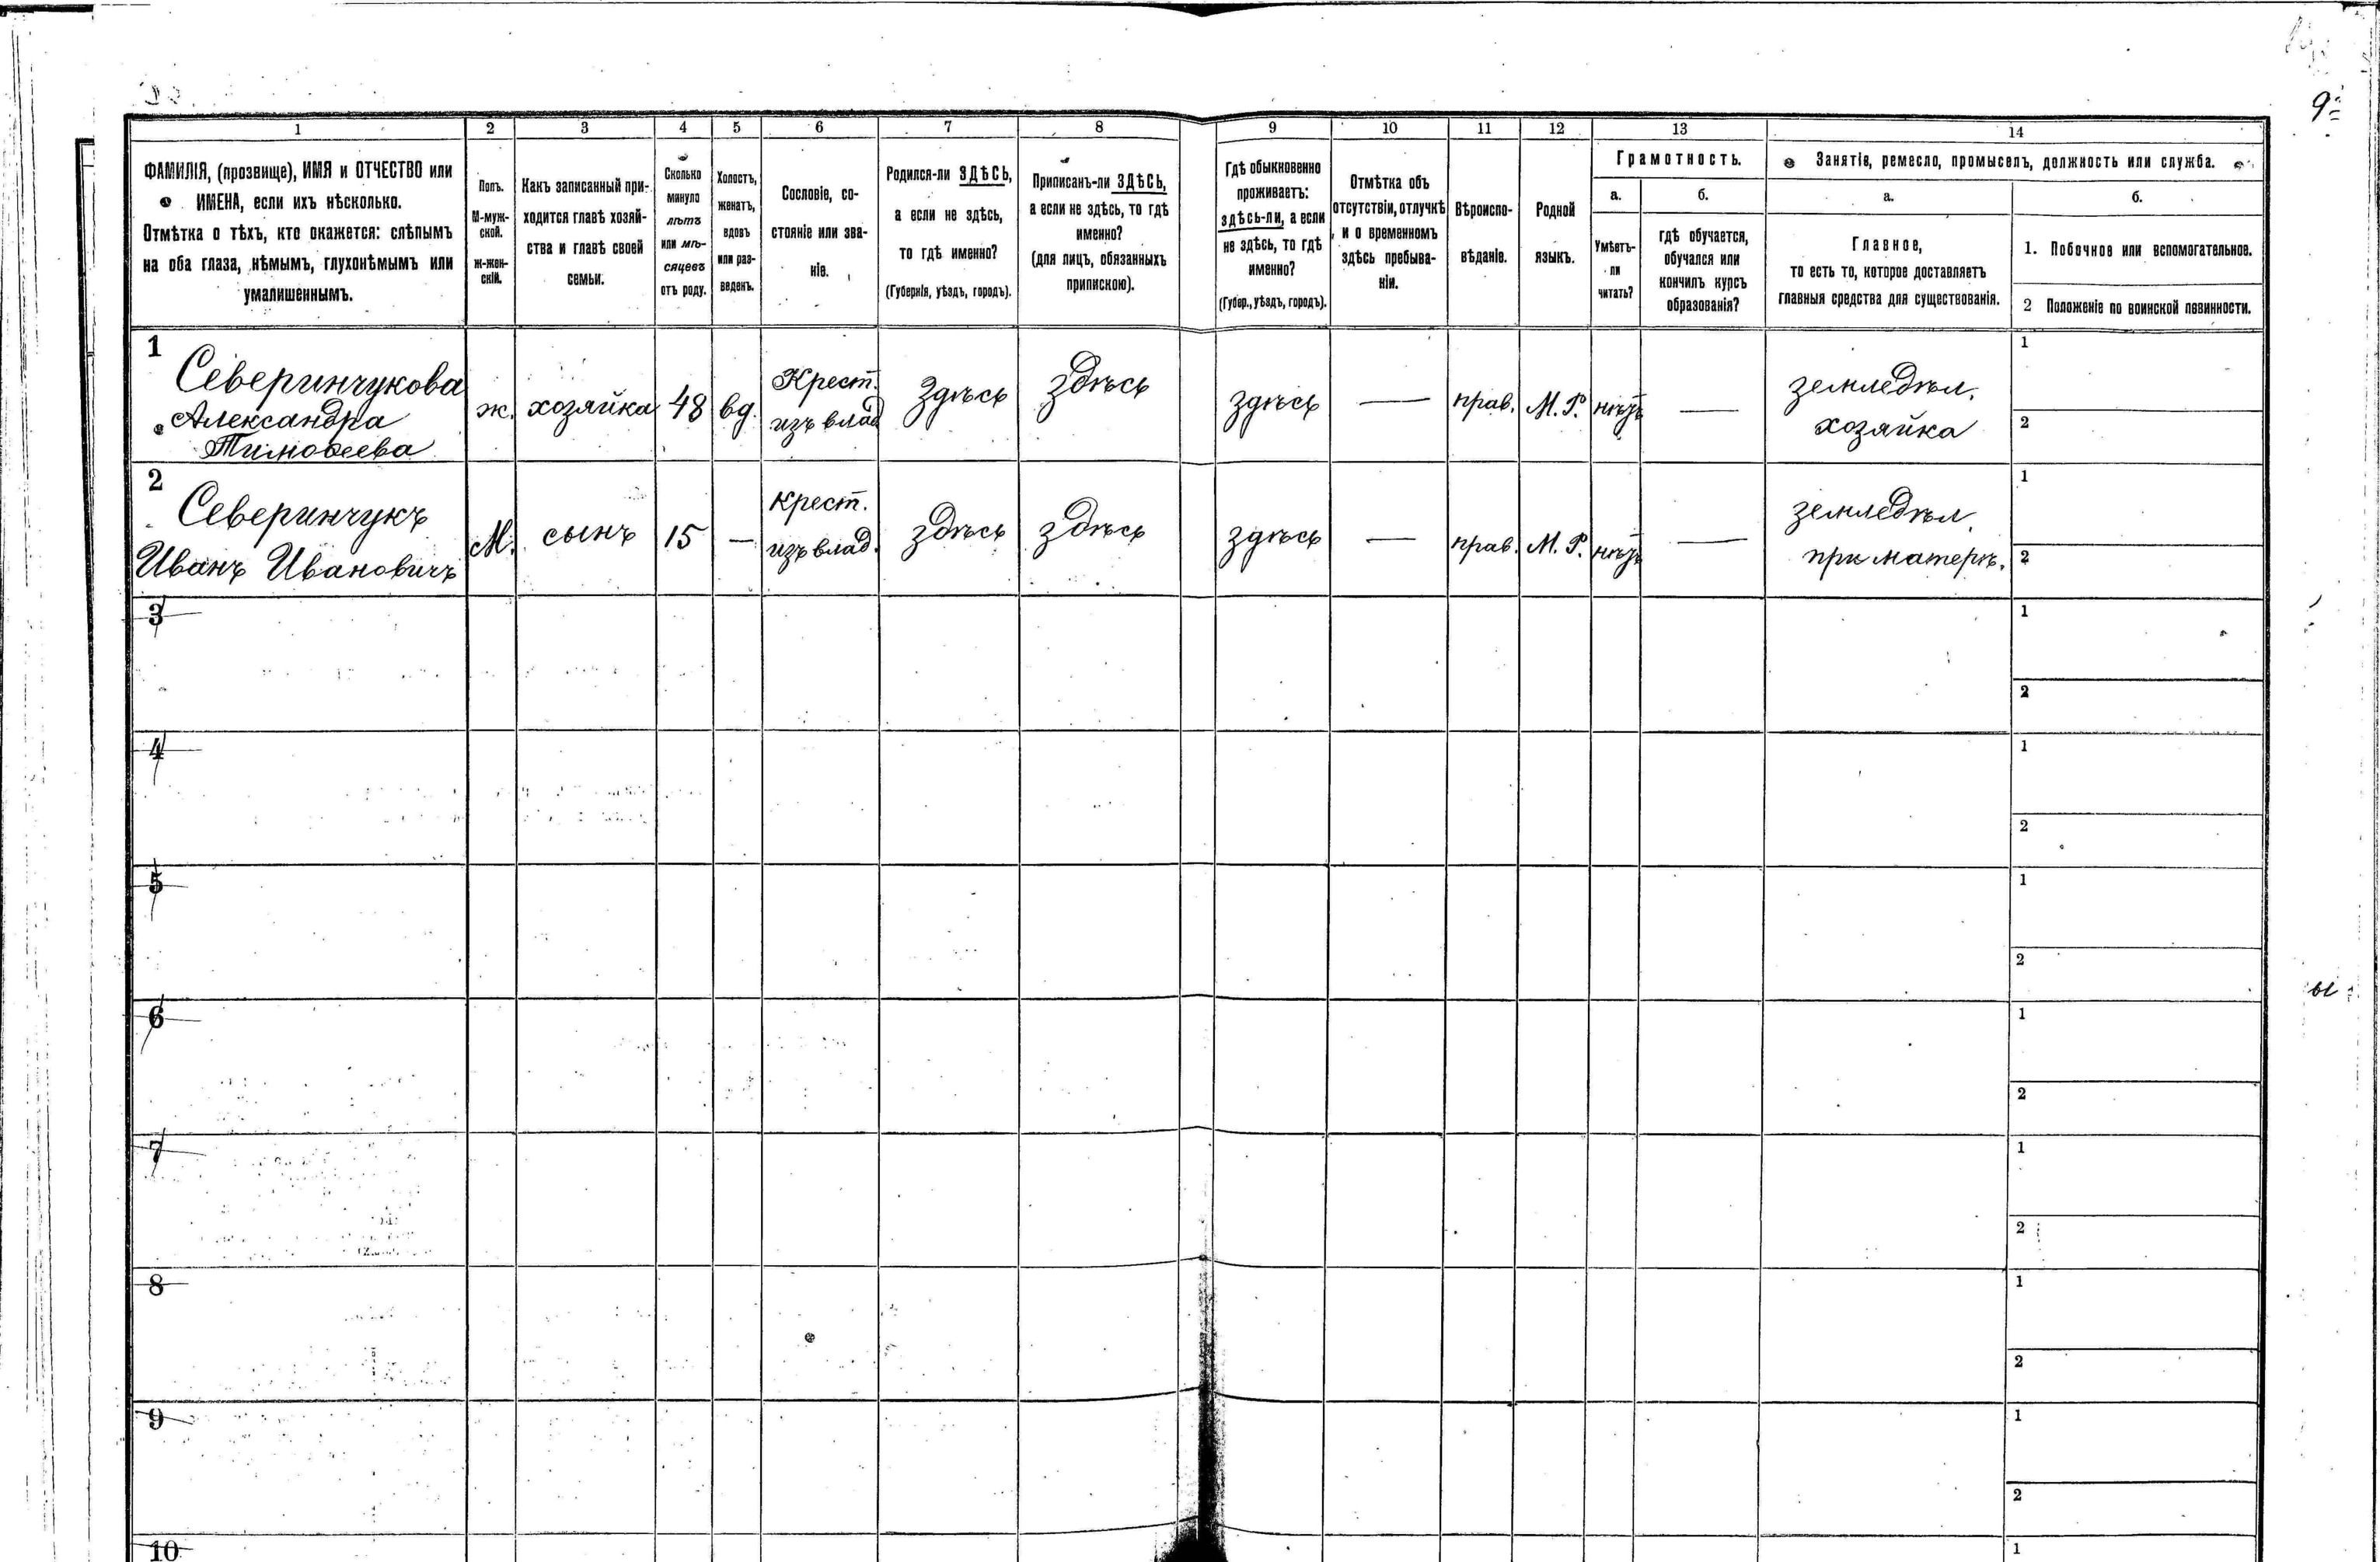 9
1 2 3 4 5 6 7 8 9 10 11 12 13 14
ФАМИЛІЯ, (прозвище), ИМЯ и ОТЧЕСТВО или
ИМЕНА, если ихъ нѣсколько.
Отмѣтка о тѣхъ, кто окажется: слѣпымъ
на оба глаза, нѣмымъ, глухонѣмымъ или
умалишеннымъ.
Полъ.
М-муж-
ской.
ж-жен-
скій.
Какъ записанный при-
ходится главѣ хозяй-
ства и главѣ своей
семьи.
Сколько
минуло
лѣтъ
или мѣ-
сяцевъ
отъ роду.
Холостъ,
женатъ,
вдовъ
или раз-
веденъ.
Сословіе, со-
стояніе или зва-
ніе.
Родился-ли ЗДѢСЬ,
а если не здѣсь,
то гдѣ именно?
(Губернія, уѣздъ, городъ).
Приписанъ-ли ЗДѢСЬ,
а если не здѣсь, то гдѣ
именно?
(для лицъ, обязанныхъ
припискою).
Гдѣ обыкновенно
проживаетъ:
здѣсь-ли, а если
не здѣсь, то гдѣ
именно?
(Губер., уѣздъ, городъ).
Отмѣтка объ
отсутствіи, отлучкѣ
и о временномъ
здѣсь пребыва-
ніи.
Вѣроиспо-
вѣданіе.
Родной
языкъ.
Грамотность.
а.
Умѣетъ-
ли
читать?
б.
гдѣ обучается,
обучался или
кончилъ курсъ
образованія?
Занятіе, ремесло, промыселъ, должность или служба.
а.
Главное,
то есть то, которое доставляетъ
главныя средства для существованія.
б.
1. Побочное или вспомогательное.
2 Положеніе по воинской повинности.
1
Северинчукова
Александра
Тимоѳеева
ж.
хозяйка
48
вд.
Крест.
изъ влад
здѣсь
здѣсь
здѣсь
—
прав.
М. Р.
нѣтъ
—
земледѣл.
хозяйка
1
2
2
Северинчукъ
Иванъ Ивановичъ
М.
сынъ
15
—
крест.
изъ влад.
здѣсь
здѣсь
здѣсь
—
прав.
М. Р.
нѣтъ
—
земледѣл.
при матерѣ.
1
2
3
1
2
4
1
2
5
1
2
6
1
2
7
1
2
8
1
2
9
1
2
10
1
ы